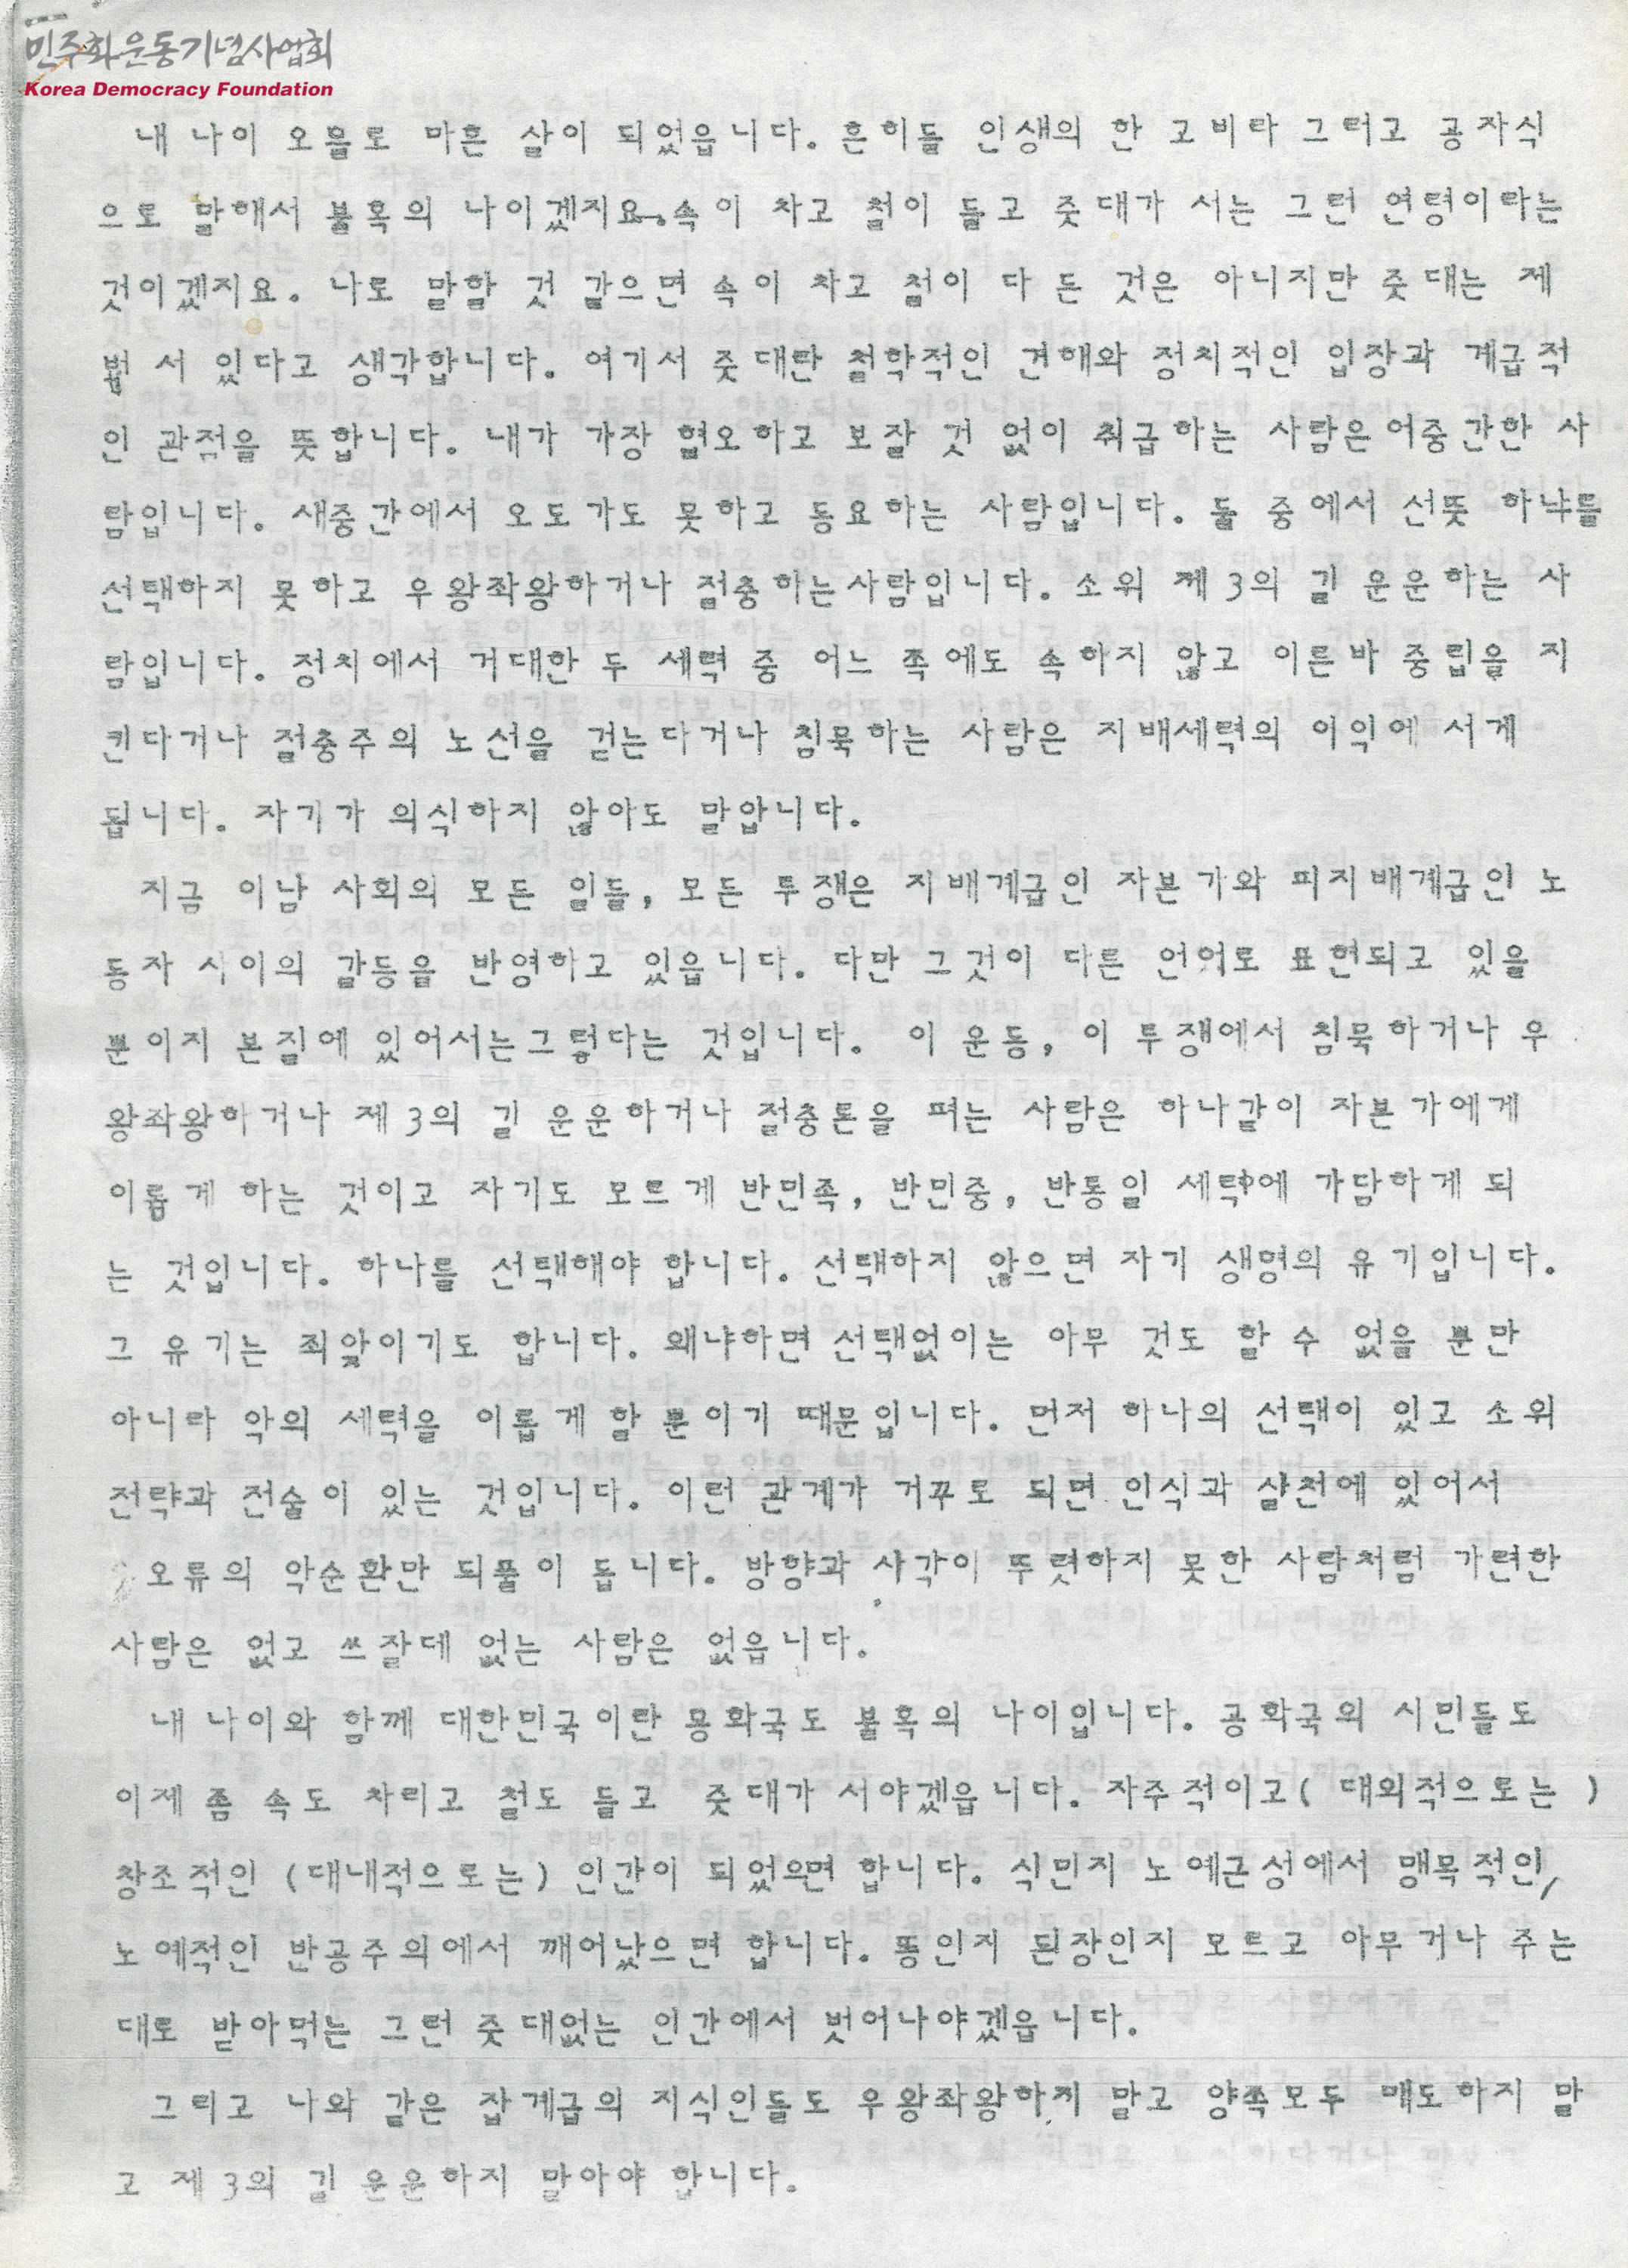 민주화운동기념사업회
Korea Democracy Foundation
내 나이 오믈로 마흔 살이 되었읍니다. 흔히들 인생의 한 고비라 그러고 공자식
으로 말해서 불혹의 나이겠지요.속이 차고 철이 들고 줏대가 서는 그런 연령이라는
것이겠지요. 나로 말할 것 같으면 속이 차고 철이 다 든 것은 아니지만 줏대는 제
법 서 있다고 생각합니다. 여기서 줏대란 철학적인 견해와 정치적인 입장과 계급적
인 관점을 뜻합니다. 내가 가장 혐오하고 보잘 것 없이 취급하는 사람은 어중간한 사
람입니다. 새중간에서 오도가도 못하고 동요하는 사람입니다. 둘 중에서 선뜻 하나를
선택하지 못하고 우왕좌왕하거나 절충하는사람입니다. 소위 제 3의 길 운운하는 사
람입니다. 정치에서 거대한 두 세력 중 어느 쪽에도 속하지 않고 이른바 중립을 지
킨다거나 절충주의 노선을 걷는다거나 침묵하는 사람은 지배세력의 이익에 서게
됩니다. 자기가 의식하지 않아도 말입니다.
지금 이남 사회의 모든 일들, 모든 투쟁은 지배계급인 자본가와 피지배계급인 노
동자 사이의 갈등을 반영하고 있읍니다. 다만 그것이 다른 언어로 표현되고 있을
뿐이지 본질에 있어서는그렇다는 것입니다. 이 운동, 이 투쟁에서 침묵하거나 우
왕좌왕하거나 제 3의 길 운운하거나 절충론을 펴는 사람은 하나같이 자본가에게
이롭게 하는 것이고 자기도 모르게 반민족, 반민중, 반통일 세력에 가담하게 되
는 것입니다. 하나를 선택해야 합니다. 선택하지 않으면 자기 생명의 유기입니다.
그 유기는 죄앚이기도 합니다. 왜냐하면 선택없이는 아무 것도 할 수 없을 뿐만
아니라 악의 세력을 이롭게 할 뿐이기 때문입니다. 먼저 하나의 선택이 있고 소위
전략과 전술이 있는 것입니다. 이런 관계가 거꾸로 되면 인식과 실천에 있어서
오류의 악순환만 되풀이 됩니다. 방향과 시각이 뚜렷하지 못한 사람처럼 가련한
사람은 없고 쓰잘데 없는 사람은 없읍니다.
내 나이와 함께 대한민국이란 공화국도 불혹의 나이입니다. 공화국의 시민들도
이제 좀 속도 차리고 철도 들고 줏대가 서야겠읍니다. 자주적이고( 대외적으로는 )
창조적인 (대내적으로는) 인간이 되었으면 합니다. 식민지 노예근성에서 맹목적인,
노예적인 반공주의에서 깨어났으면 합니다. 똥인지 된장인지 모르고 아무거나 주는
대로 받아먹는 그런 줏대없는 인간에서 벗어나야겠읍니다.
그리고 나와 같은 잡계급의 지식인들도 우왕좌왕하지 말고 양쪽모두 매도하지 말
고 제 3의 길 운운하지 말아야 합니다.